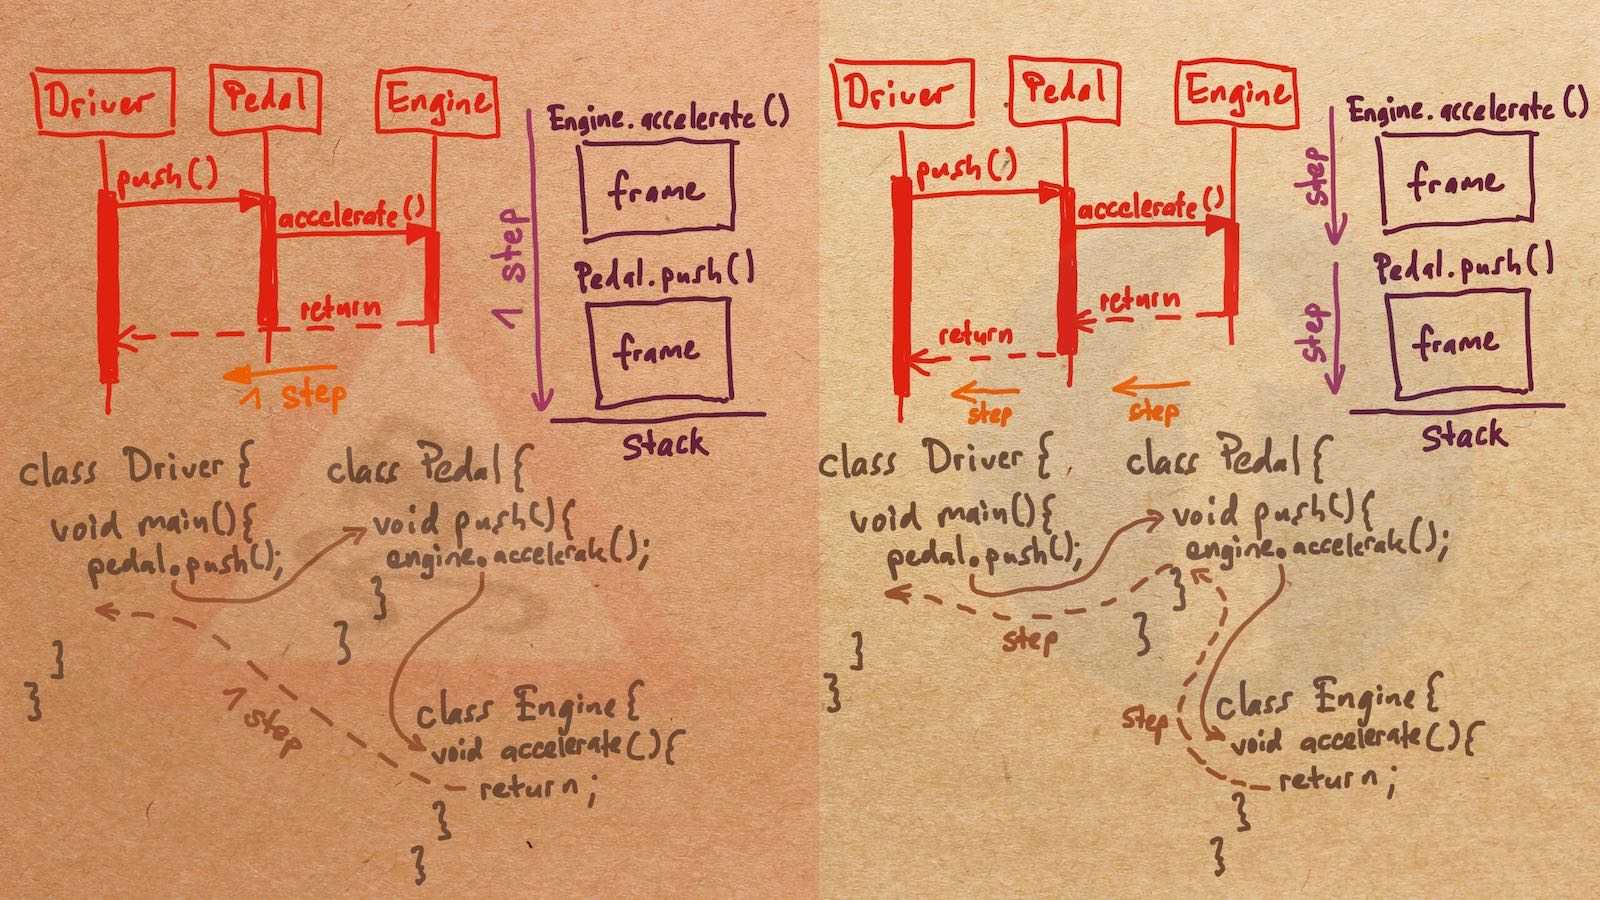 Driver Pedal Engine
push()
accelerate()
return
1 step
1 step
Engine.accelerate()
frame
Pedal.push()
frame
Stack
class Driver {
void main(){
pedal.push();
}
}
class Pedal {
void push(){
engine.accelerate();
}
}
1 step
class Engine {
void accelerate(){
return;
}
}
Driver Pedal Engine
push()
accelerate()
return
return
step
step
step
step
Engine.accelerate()
frame
Pedal.push()
frame
Stack
class Driver {
void main(){
pedal.push();
}
}
class Pedal {
void push(){
engine.accelerate();
}
}
step
step
class Engine {
void accelerate(){
return;
}
}